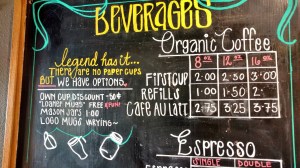 BEVERAGES
Organic Coffee
8 oz 12 oz 16 oz
First cup 2.00 2.50 3.00
Refills 1.00 1.50 2.
Café au Lait 2.75 3.25 3.75
legend has it...
There are no paper cups
BUT We have options.
Own cup discount -50¢
"Loaner Mugs" FREE
Mason Jars 1.00
Logo Mugs varying~
Espresso
SINGLE DOUBLE